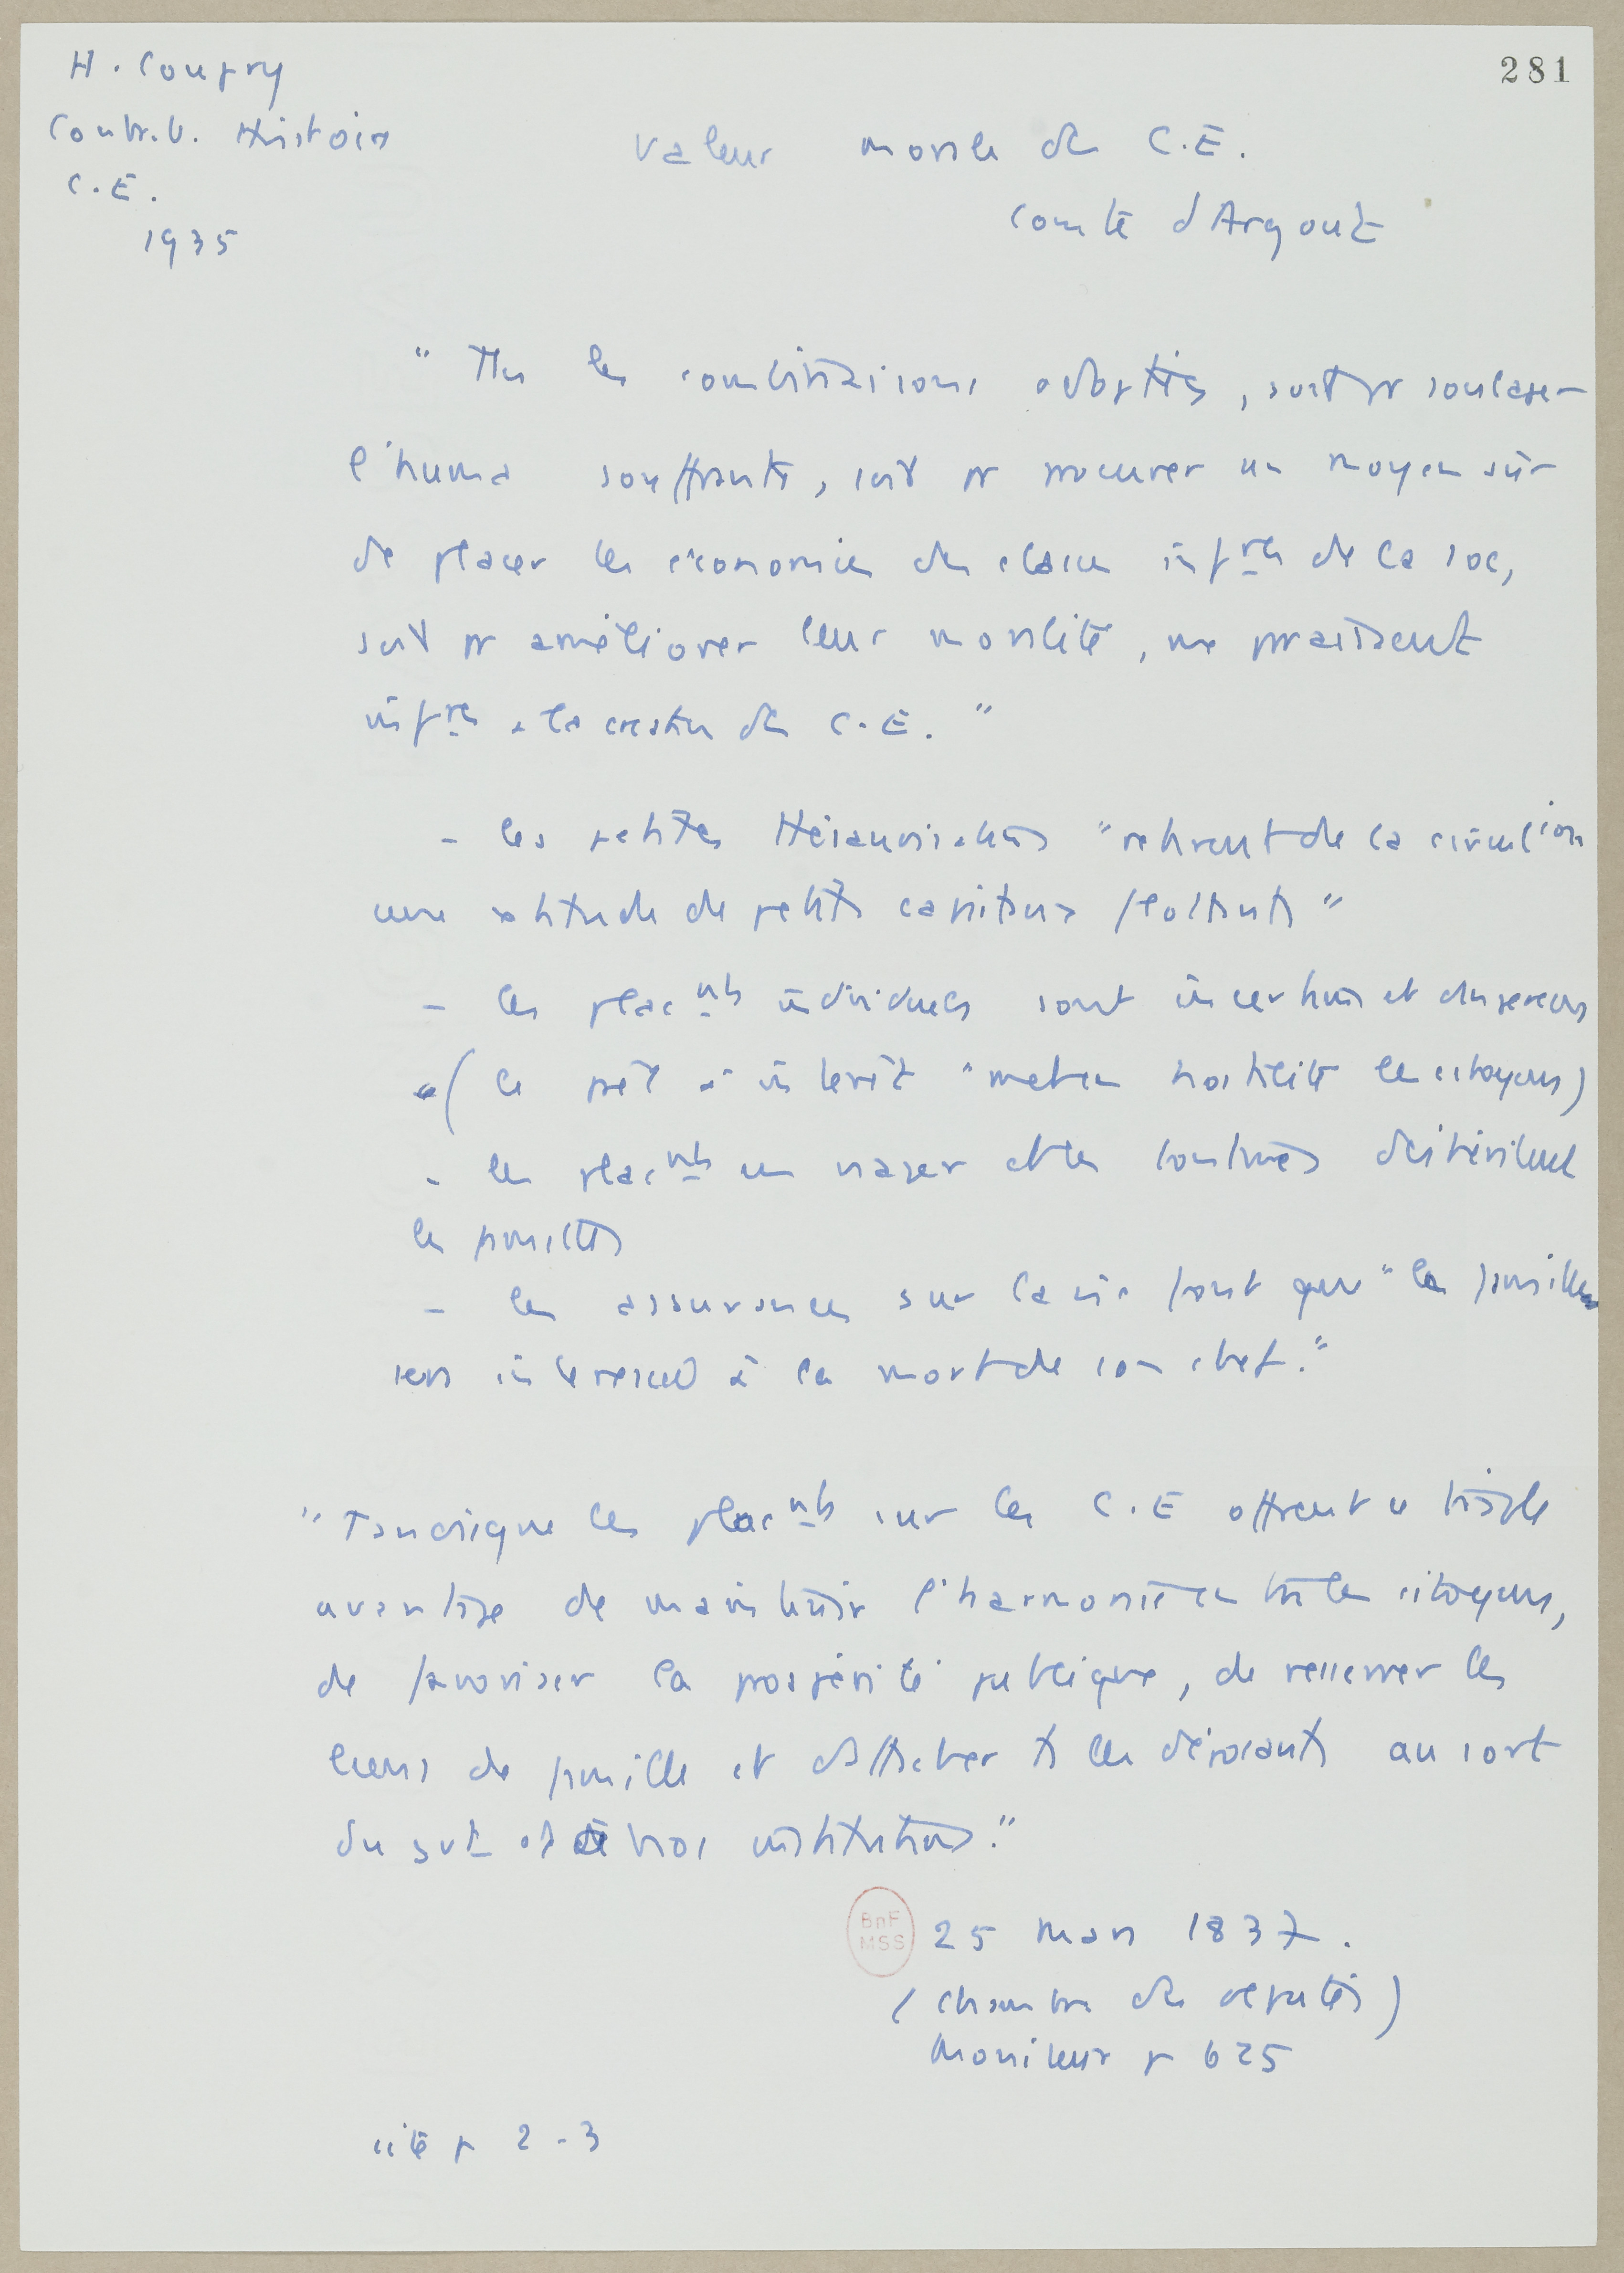 281
H. Coupry
Contrib. Histoire
C.E.
1935
Valeur morale des C.E.
Comte d'Argout
" Ttes les combinaisons adoptées, soit pr soulager
l'huma souffrante, soit pr procurer un moyen sûr
de placer les économies des classes infres de la soc,
soit pr améliorer leur moralité, me praissent
infres à la création des C.E. "
- les petites thésaurisations "retirent de la circulion
une de petits capitaux flottants "
- les placnts individuels sont incertains et dangereux
(le prêt à intérêt "met en hostilité les citoyens)
- les placnts en viager et les tontines déshéritent
les familles
- les assurances sur la vie font que "la famille
sera intéressée à la mort de son chef."
" Tandis que les placnts sur les C.E offrent le triple
avantage de maintenir l'harmonie entre les citoyens,
de favoriser la prospérité publique, de resserrer les
liens de famille et d'attacher ts les déposants au sort
du gvt et de nos institutions."
BnF
MSS
25 Mars 1837.
(Chambre des députés)
Moniteur p 625
cité p 2-3